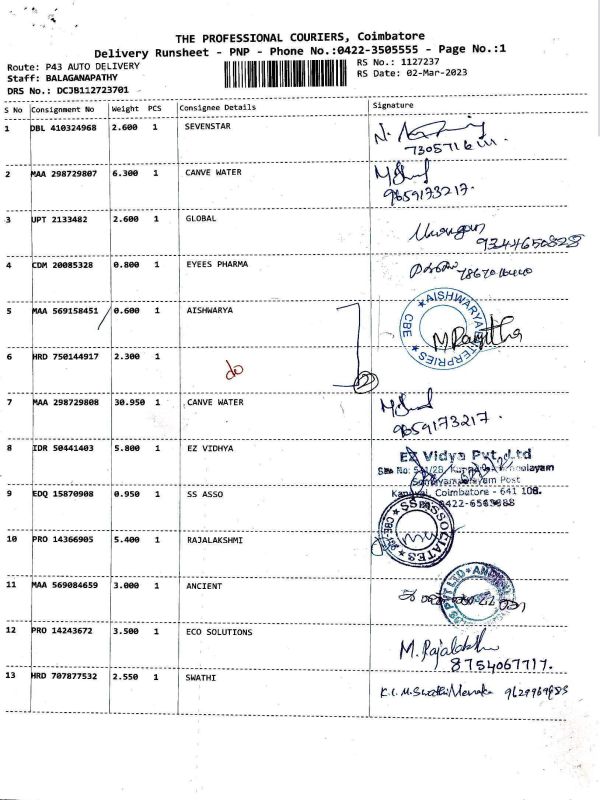 THE PROFESSIONAL COURIERS, Coimbatore
Delivery Runsheet - PNP - Phone No.:0422-3505555 - Page No.:1
Route: P43 AUTO DELIVERY
RS No.: 1127237
Staff: BALAGANAPATHY
RS Date: 02-Mar-2023
DRS No.: DCJB112723701
S No Consignment No Weight PCS Consignee Details Signature
1 DBL 410324968 2.600 1 SEVENSTAR
2 MAA 298729807 6.300 1 CANVE WATER
9659173217.
3 UPT 2133482 2.600 1 GLOBAL
9344650828
4 CDM 20085328 0.800 1 EYEES PHARMA
5 MAA 569158451 0.600 1 AISHWARYA
AISHWARYA ENTERPRIES CBE
6 HRD 750144917 2.300 1
do
2
7 MAA 298729808 30.950 1 CANVE WATER
9659173217.
8 IDR 50441403 5.800 1 EZ VIDHYA
EZ Vidya Pvt. Ltd
Post
Coimbatore - 641 108.
9 EDQ 15870908 0.950 1 SS ASSO
SS ASSOCIATES
10 PRO 14366905 5.400 1 RAJALAKSHMI
11 MAA 569084659 3.000 1 ANCIENT
PVT LTD
12 PRO 14243672 3.500 1 ECO SOLUTIONS
M. Rajalakshmi
8754067717.
13 HRD 707877532 2.550 1 SWATHI
K.L.M.Swathi Menaka 9629969683